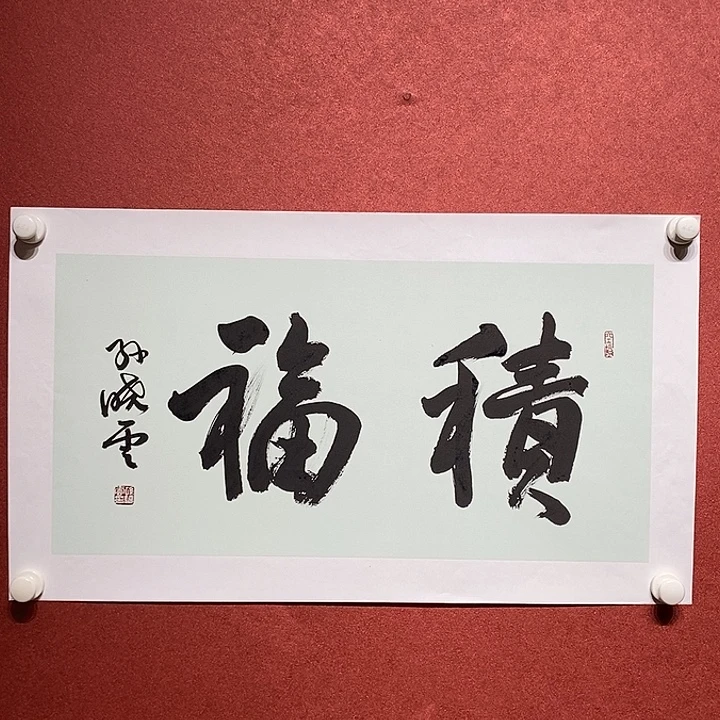 積福
孙晓云